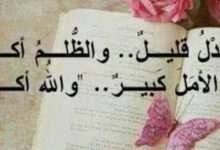 دْلُ قليلٌ.. والظُّلمُ أك
الأمَل كبيرٌ.. "والله أك